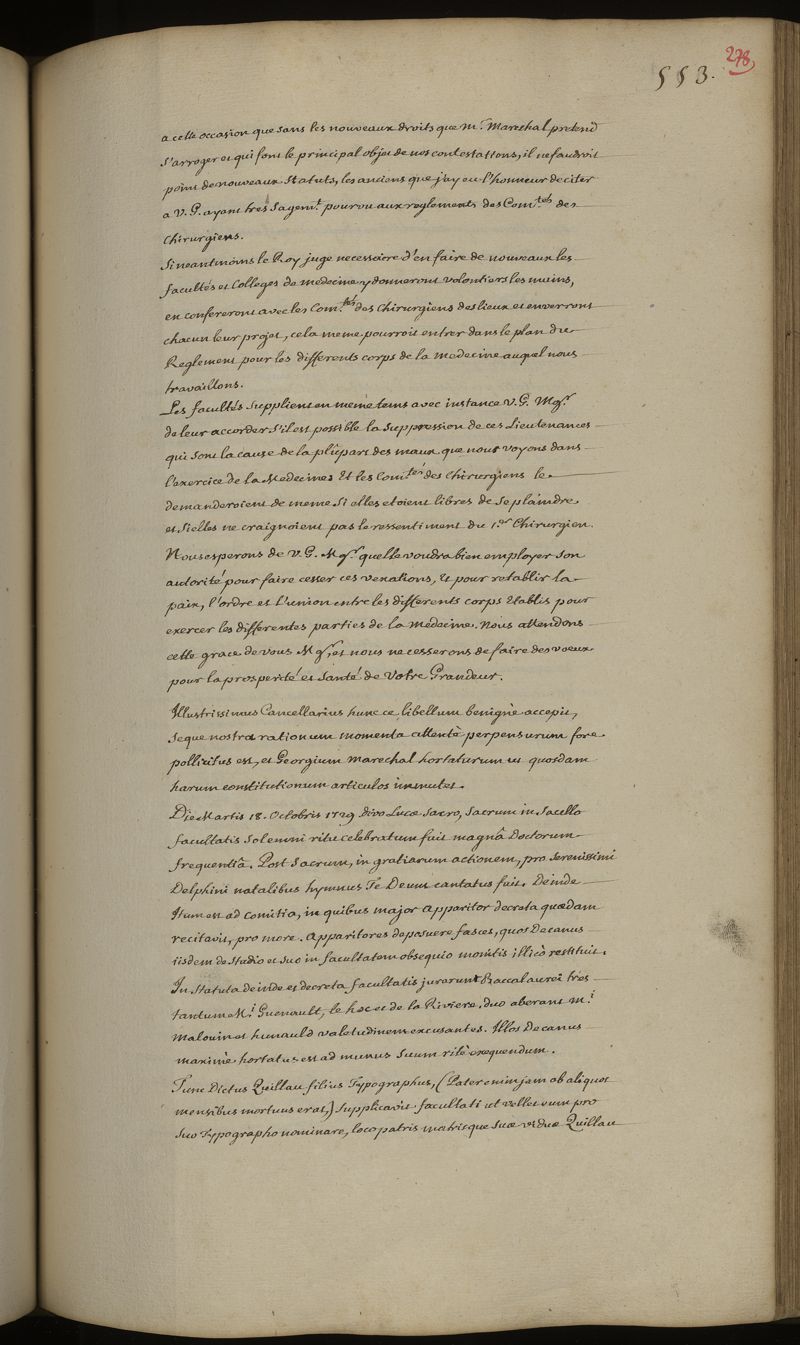 278
553.
a cette occasion que sans les nouveaux droits que M.r Mareschal pretend
s'arroger et qui font le principal objet de nos contestations, il ne faudroit
point de nouveaux Statuts, les anciens que j'ay eu l'honneur de citer
a V. G. ayant tres sagem.t pourvu aux reglements des Com.tés des
Chirurgiens.
Si neantmoins le Roy juge necessaire d'en faire de nouveaux les
facultés et Colleges de medecine y donneront volontiers les mains,
en confereront avec les Com.tés des Chirurgiens des lieux et enverront
chacun leur projet, cela meme pourroit entrer dans le plan du
Reglement pour les differents corps de la medecine auquel nous
travaillons.
Les facultés supplient en meme tems avec instance V. G. Mg.r
de leur accorder s'il est possible la suppression de ces Lieutenances
qui sont la cause de la plûpart des maux que nous voyons dans
l'exercice de la Medecine. Et les Com.tés des Chirurgiens le
demanderoient de meme si elles etoient libres de se plaindre
et si elles ne craignoient pas le ressentiment du 1.er Chirurgien.
Nous esperons de V. G. Mg.r quelle voudra bien employer son
autorité pour faire cesser ces vexations, et pour retablir la
paix, l'ordre et l'union entre les differents corps etablis pour
exercer les differentes parties de la medecine. Nous attendons
cette grace de vous Mg.r, et nous ne cesserons de faire des voeux
pour la prosperité et santé de Votre Grandeur.
Illustrissimus Cancellarius hunce libellum benignè accepit,
seque nostra rationum momenta attentè perpensurum fore
pollicitus est, et Georgium Mareschal hortaturum ut quosdam
harum constitutionum articulos immutet.
Die Martis 18. Octobris 1729 divo Lucæ sacro, sacrum in sacello
facultatis solemni ritu celebratum fuit magnâ Doctorum
frequentiâ. Post sacrum, in gratiarum actionem, pro serenissimi
Delphini natalibus hymnus Te Deum cantatus fuit. Deinde
itum est ad comitia, in quibus major apparitor decreta quædam
recitavit, pro more. Apparitores deposuere fasces, quos Decanus
iisdem de studio et suo in facultatem obsequio monitis illicò restituit.
In statuta deinde et decreta facultatis jurarunt Baccalaurei tres
tantum M.i Guenault, le hoc et de la Riviere, duo aberant M.i
Malouin et hunauld valetudinem excusantes. Illos Decanus
maximè hortatus est ad munus suum ritè exequendum.
Tunc Dictus Quillau filius Typographus, (Pater enim jam ab aliquot
mensibus mortuus erat,) supplicavit facultati ut vellet eum pro
suo Typographo nominare, loco patris matrisque suæ viduæ Quillau